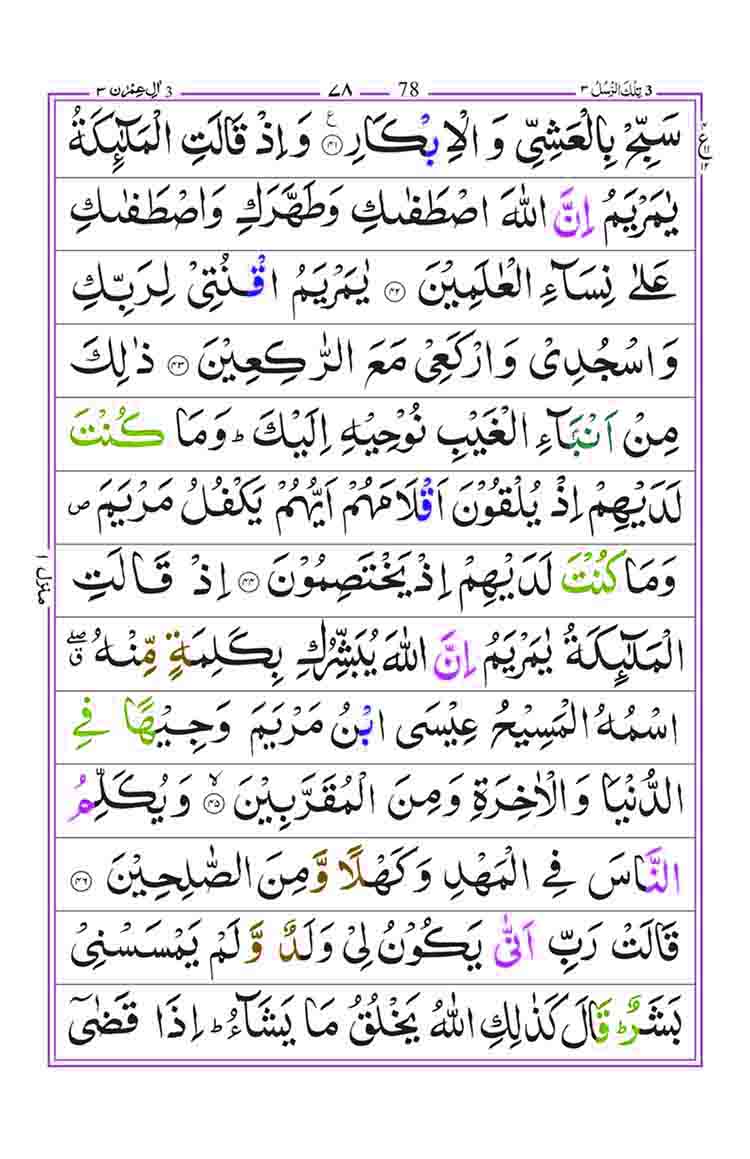 3 تِلْكَ الرُّسُلُ ٣ 78 ٧٨ 3 اٰلِ عِمْرٰن ٣
سَبِّحْ بِالْعَشِیِّ وَ الْاِبْكَارِ ۝۴۱ ع وَ اِذْ قَالَتِ الْمَلٰٓىِٕكَةُ
یٰمَرْیَمُ اِنَّ اللّٰهَ اصْطَفٰىكِ وَطَهَّرَكِ وَاصْطَفٰىكِ
عَلٰى نِسَآءِ الْعٰلَمِیْنَ ۝۴۲ یٰمَرْیَمُ اقْنُتِیْ لِرَبِّكِ
وَاسْجُدِیْ وَارْكَعِیْ مَعَ الرّٰكِعِیْنَ ۝۴۳ ذٰلِكَ
مِنْ اَنْۢبَآءِ الْغَیْبِ نُوْحِیْهِ اِلَیْكَ ؕ وَمَا كُنْتَ
لَدَیْهِمْ اِذْ یُلْقُوْنَ اَقْلَامَهُمْ اَیُّهُمْ یَكْفُلُ مَرْیَمَ ص
وَمَا كُنْتَ لَدَیْهِمْ اِذْ یَخْتَصِمُوْنَ ۝۴۴ اِذْ قَالَتِ
الْمَلٰٓىِٕكَةُ یٰمَرْیَمُ اِنَّ اللّٰهَ یُبَشِّرُكِ بِكَلِمَةٍ مِّنْهُ ۖۗ
اسْمُهُ الْمَسِیْحُ عِیْسَى ابْنُ مَرْیَمَ وَجِیْهًا فِی
الدُّنْیَا وَالْاٰخِرَةِ وَمِنَ الْمُقَرَّبِیْنَ ۙ۝۴۵ وَیُكَلِّمُ
النَّاسَ فِی الْمَهْدِ وَكَهْلًا وَّمِنَ الصّٰلِحِیْنَ ۝۴۶
قَالَتْ رَبِّ اَنّٰى یَكُوْنُ لِیْ وَلَدٌ وَّلَمْ یَمْسَسْنِیْ
بَشَرٌ ؕ قَالَ كَذٰلِكِ اللّٰهُ یَخْلُقُ مَا یَشَآءُ ؕ اِذَا قَضٰۤى
منزل ۱